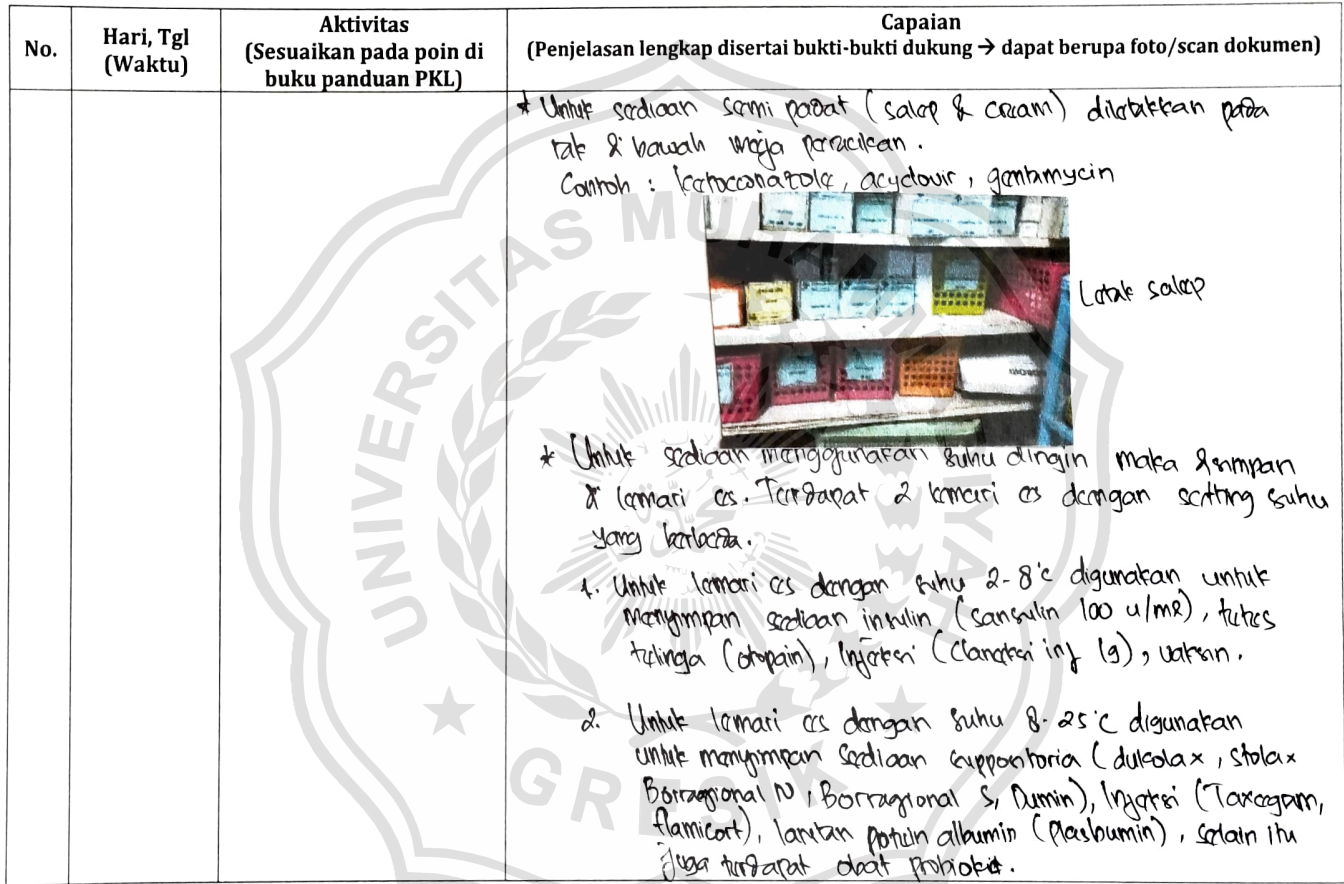 No.
Hari, Tgl
(Waktu)
Aktivitas
(Sesuaikan pada poin di
buku panduan PKL)
Capaian
(Penjelasan lengkap disertai bukti-bukti dukung → dapat berupa foto/scan dokumen)
* Untuk sediaan semi padat (salep & cream) diletakkan pada
rak di bawah meja peracikan.
Contoh : ketoconazole, acyclovir, gentamycin
Letak salep
* Untuk sediaan menggunakan suhu dingin maka disimpan
di lemari es. Terdapat 2 lemari es dengan setting suhu
yang berbeda.
1. Untuk lemari es dengan suhu 2-8°c digunakan untuk
menyimpan sediaan insulin (sansulin 100 u/ml), tetes
telinga (otopain), Injeksi (Claneksi inj 1g), vaksin.
2. Untuk lemari es dengan suhu 8-25°C digunakan
untuk menyimpan sediaan suppositoria (dulcolax, stolax
Borragional N, Borragional S, Dumin), Injeksi (Taxegram,
flamicort), larutan protein albumin (Plasbumin), selain itu
juga terdapat obat probiotik.
UNIVERSITAS MUHAMMADIYAH
GRESIK